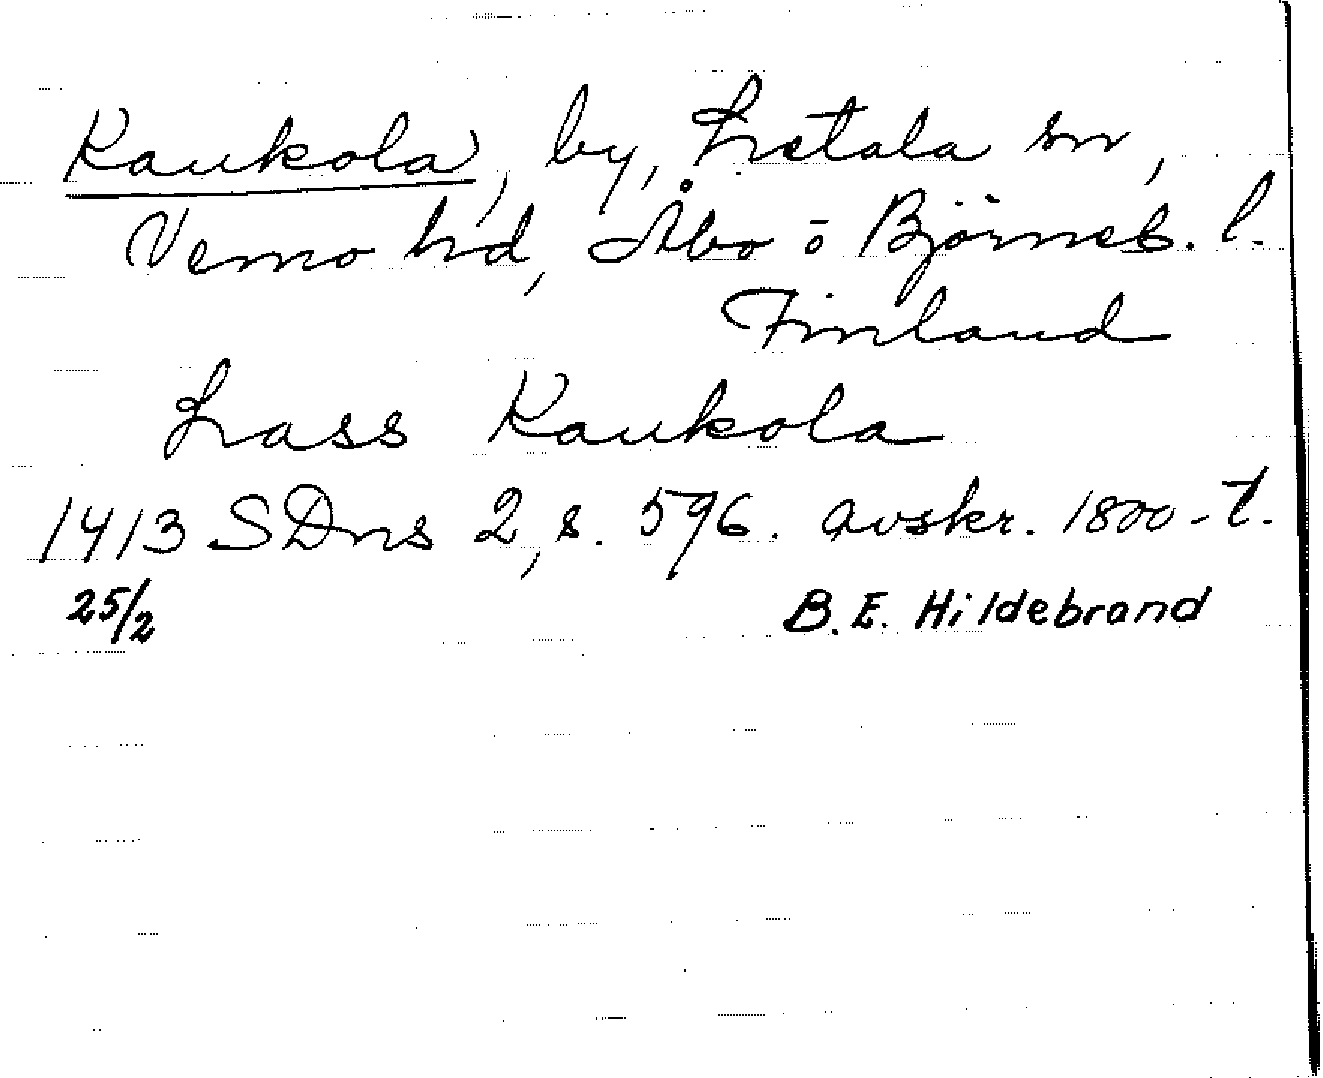 Kaukola, by, Letala sn,
Vemo hd, Åbo o Björneb. l.
Finland
Lass Kaukola
1413 SDns 2, s. 596. avskr. 1800-t.
25/2 B. E. Hildebrand